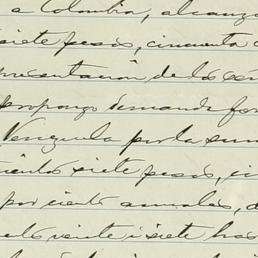 a Colombia, alcanza
siete pesos, cincuenta c
presentación de los
propongo demanda for
Venezuela por la sum
cientos siete pesos, ci
por ciento anuales, d
veinte i siete has